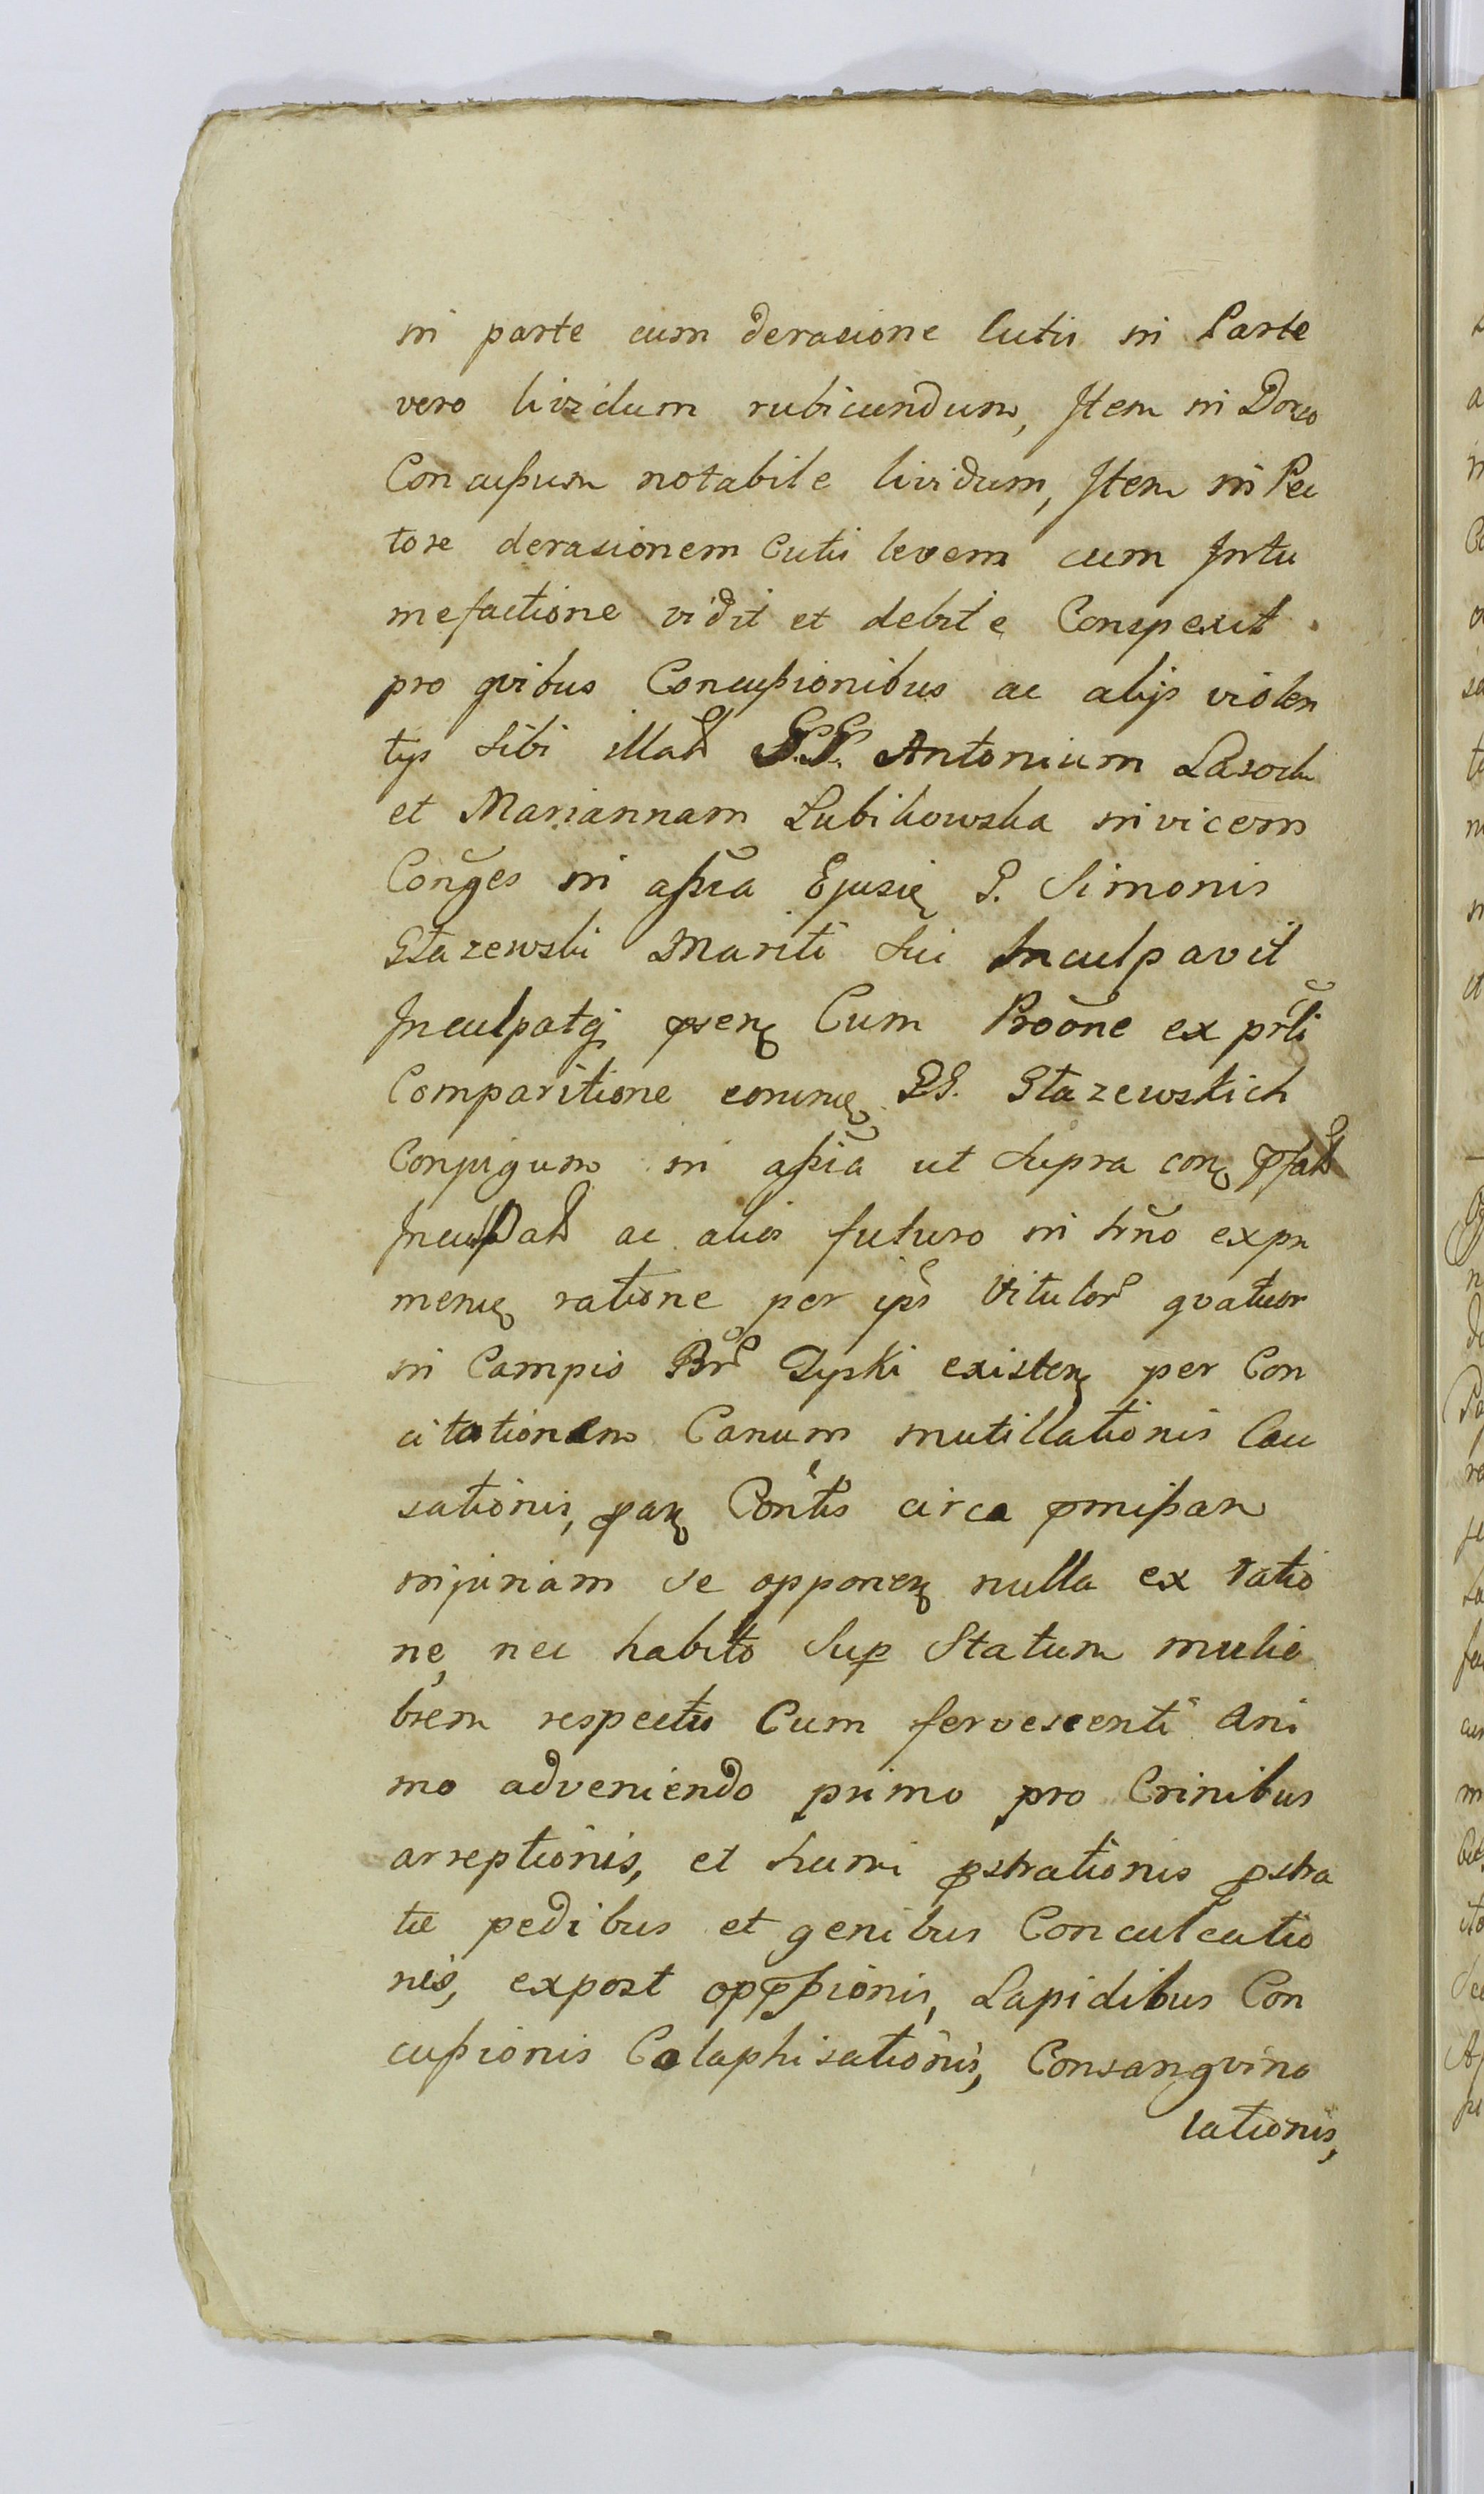 in parte cum derasione Cutis in Parte
vero lividum rubicundum, Item in Dorso
Concussum notabile lividum, Item in Pec
tore derasionem Cutis levem cum Intu
mefactione vidit et debite Conspexit.
pro qvibus Concussionibus ac alijs violen
tijs sibi illat̃ GG. Antonium Lasock
et Mariannam Lubikowska invicem
Cong̃es in assĩa Ejusd G. Simonis
Stazewski Mariti sui Inculpavit
Inculpatq̃ psen Cum Proõne ex prl̃i
Comparitione eorund GG. Stazewskich
Conjugum in assĩa ut supra con pfat̃
Inculpat̃ ac alios futuro in trñо expri
mend ratione per ips̃ Vitulor̃ qvatuor
in Campis Bnr̃ Dyski existen per Con
citationem Canum mutillationis Cau
sationis, pan Con̄tis circa pmissam
injuriam se opponen nulla ex ratio
ne, nec habito Sup Statum mulie
brem respectu Cum fervescenti Ani
mo adveniendo primo pro Crinibus
arreptionis, et humi pstrationis pstra
tæ pedibus et genibus Conculcatio
nis, expost oppssionis, Lapidibus Con
cussionis Colaphisationis, Consangvino
lationis,